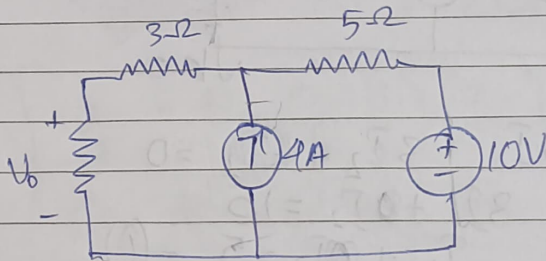 3Ω 5Ω
+
V₀ ↑ 4A + 10V
-
-